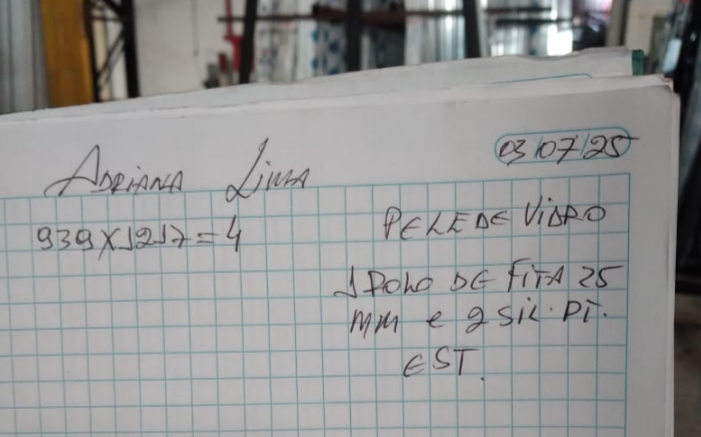 ADRIANA LIMA
03/07/25
939X1217=4
PELE DE VIDRO
1 ROLO DE FITA 25
MM e 2 SIL. PT.
EST.